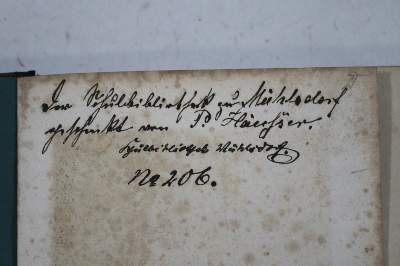 Der Schulbibliothek zu Mühlsdorf
geschenkt von
Schulbibliothek Mühlsdorf.
No 206.